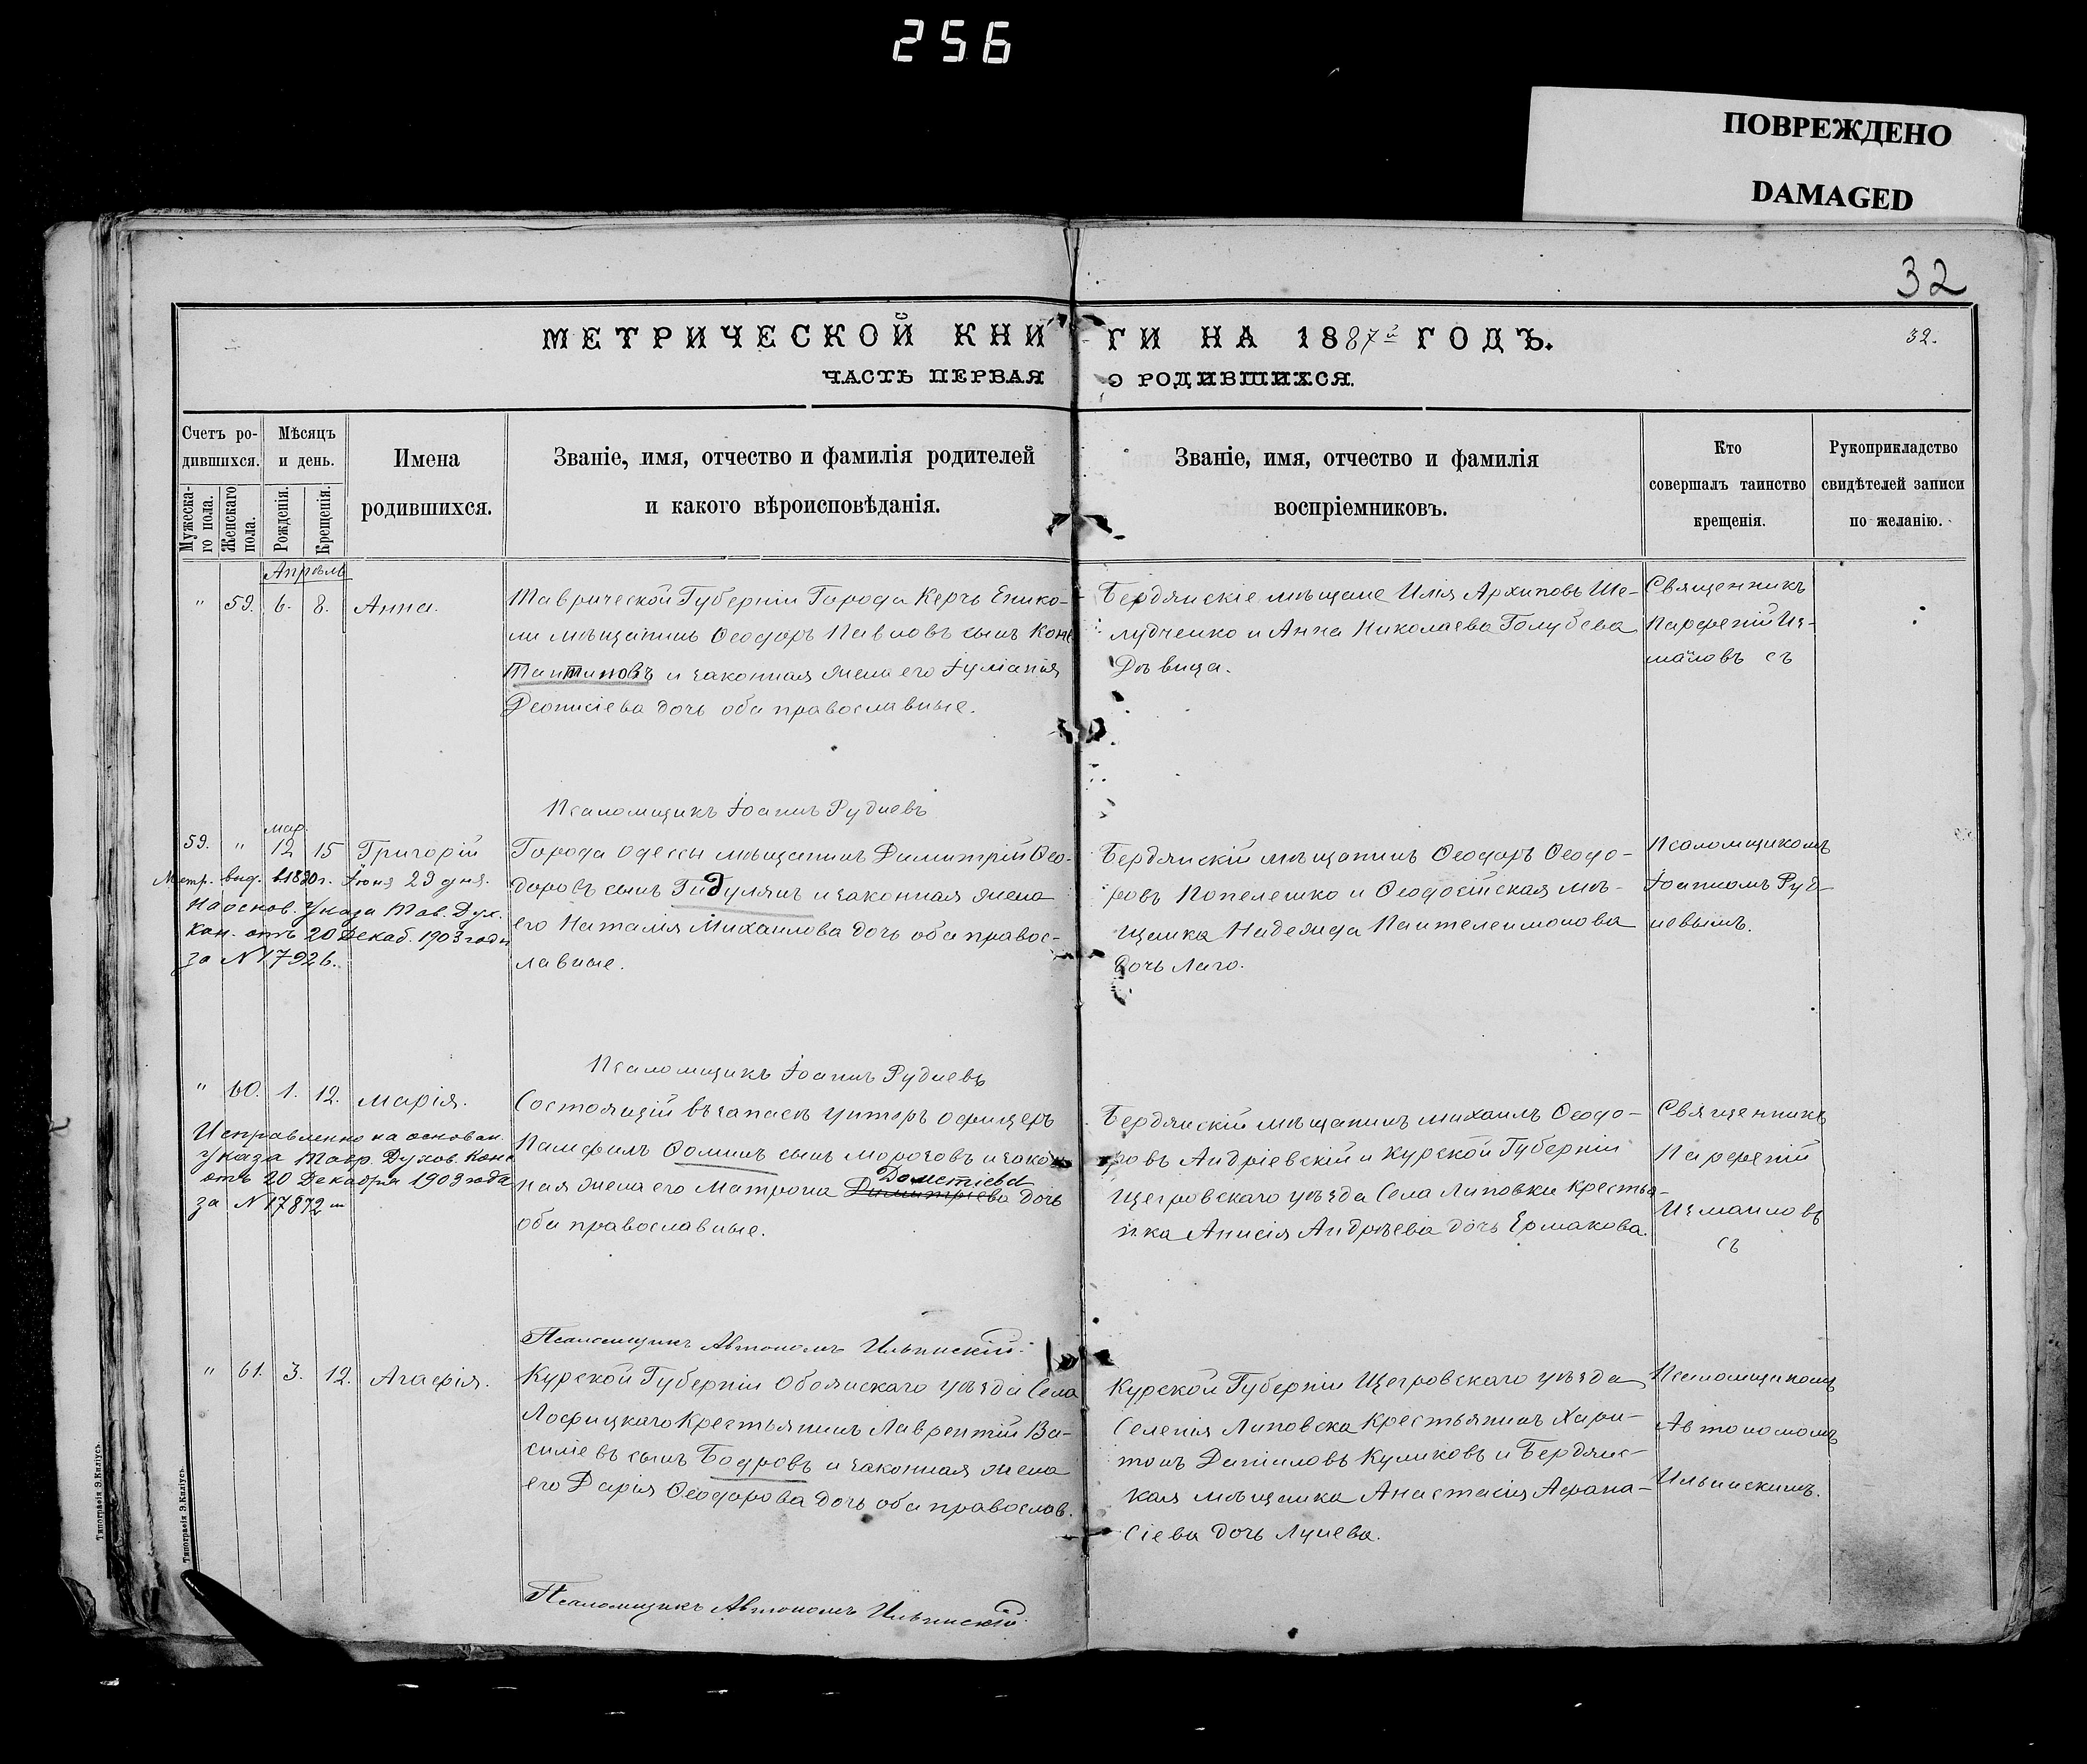 256
ПОВРЕЖДЕНО
DAMAGED
32
МЕТРИЧЕСКОЙ КНИГИ НА 1887й ГОДЪ.
32.
ЧАСТЬ ПЕРВАЯ О РОДИВШИХСЯ.
Счетъ ро-
дившихся.
Мужеска-
го пола.
Женскаго
пола.
Мѣсяцъ
и день.
Рожденія.
Крещенія.
Имена
родившихся.
Званіе, имя, отчество и фамилія родителей
и какого вѣроисповѣданія.
Званіе, имя, отчество и фамилія
воспріемниковъ.
Кто
совершалъ таинство
крещенія.
Рукоприкладство
свидѣтелей записи
по желанію.
Апрѣль
" 59. 6. 8. Анна.
Таврической Губерніи Города Керчь Енико-
ли мѣщанинъ Ѳеодоръ Павловъ сынъ Конс
тантиновъ и законная жена его Іуліанія
Діонисіева дочь оба православные.
Бердянскіе мѣщане Илія Архиповъ Ше-
лудченко и Анна Николаева Голубева
Дѣвица.
Священникъ
Парѳеній Из-
маиловъ съ
Псаломщикъ Іоаннъ Рудневъ
мар.
59. " 12 15 Григорій
Метр. выд. 1890г. Іюня 29 дня.
На основ. Указа Тав. Дух.
Кон. отъ 20 Декаб. 1903 года
за N 17926.
Города Одессы мѣщанинъ Димитрій Ѳео-
доровъ сынъ Гидулянъ и законная жена
его Наталія Михаилова дочь оба правос-
лавные.
Бердянскій мѣщанинъ Ѳеодоръ Ѳеодо-
ровъ Попелешко и Ѳеодосійская мѣ-
щанка Надежда Пантелеимонова
дочь Лаго.
Псаломщикомъ
Іоанномъ Руд-
невымъ.
Псаломщикъ Іоаннъ Рудневъ
" 60. 1. 12. Марія.
Исправленно на основан.
Указа Тавр. Духов. Конс
отъ 20 Декабря 1903 года
за N 17872
Состоящій въ запасѣ унтеръ офицеръ
Памфилъ Ѳоминъ сынъ Морозовъ и закон
Дометіева
ная жена его Матрона Димитріева дочь
оба православные.
Бердянскій мѣщанинъ Михаилъ Ѳеодо-
ровъ Андріевскій и Курской Губерніи
Щегровскаго уѣзда Села Липовки крестья-
нка Анисія Андрѣева дочь Ермакова.
Священникъ
Парѳеній
Измаиловъ
съ
Псаломщикъ Автономъ Ильинскій.
" 61. 3. 12. Агаѳія.
Курской Губерніи Обоянскаго уѣзда Села
Лофицкаго Крестьянинъ Лаврентій Ва-
силіевъ сынъ Бодровъ и законная жена
его Дарія Ѳеодорова дочь оба православ.
Курской Губерніи Щегровскаго уѣзда
Селенія Липовска Крестьянинъ Хари-
тонъ Даниловъ Куликовъ и Бердянс-
кая мѣщанка Анастасія Аѳана-
сіева дочь Лунева.
Псаломщикомъ
Автономомъ
Ильинскимъ.
Псаломщикъ Автономъ Ильинскій.
Типографія Э.Киліусъ.
Типографія Э.Киліусъ.